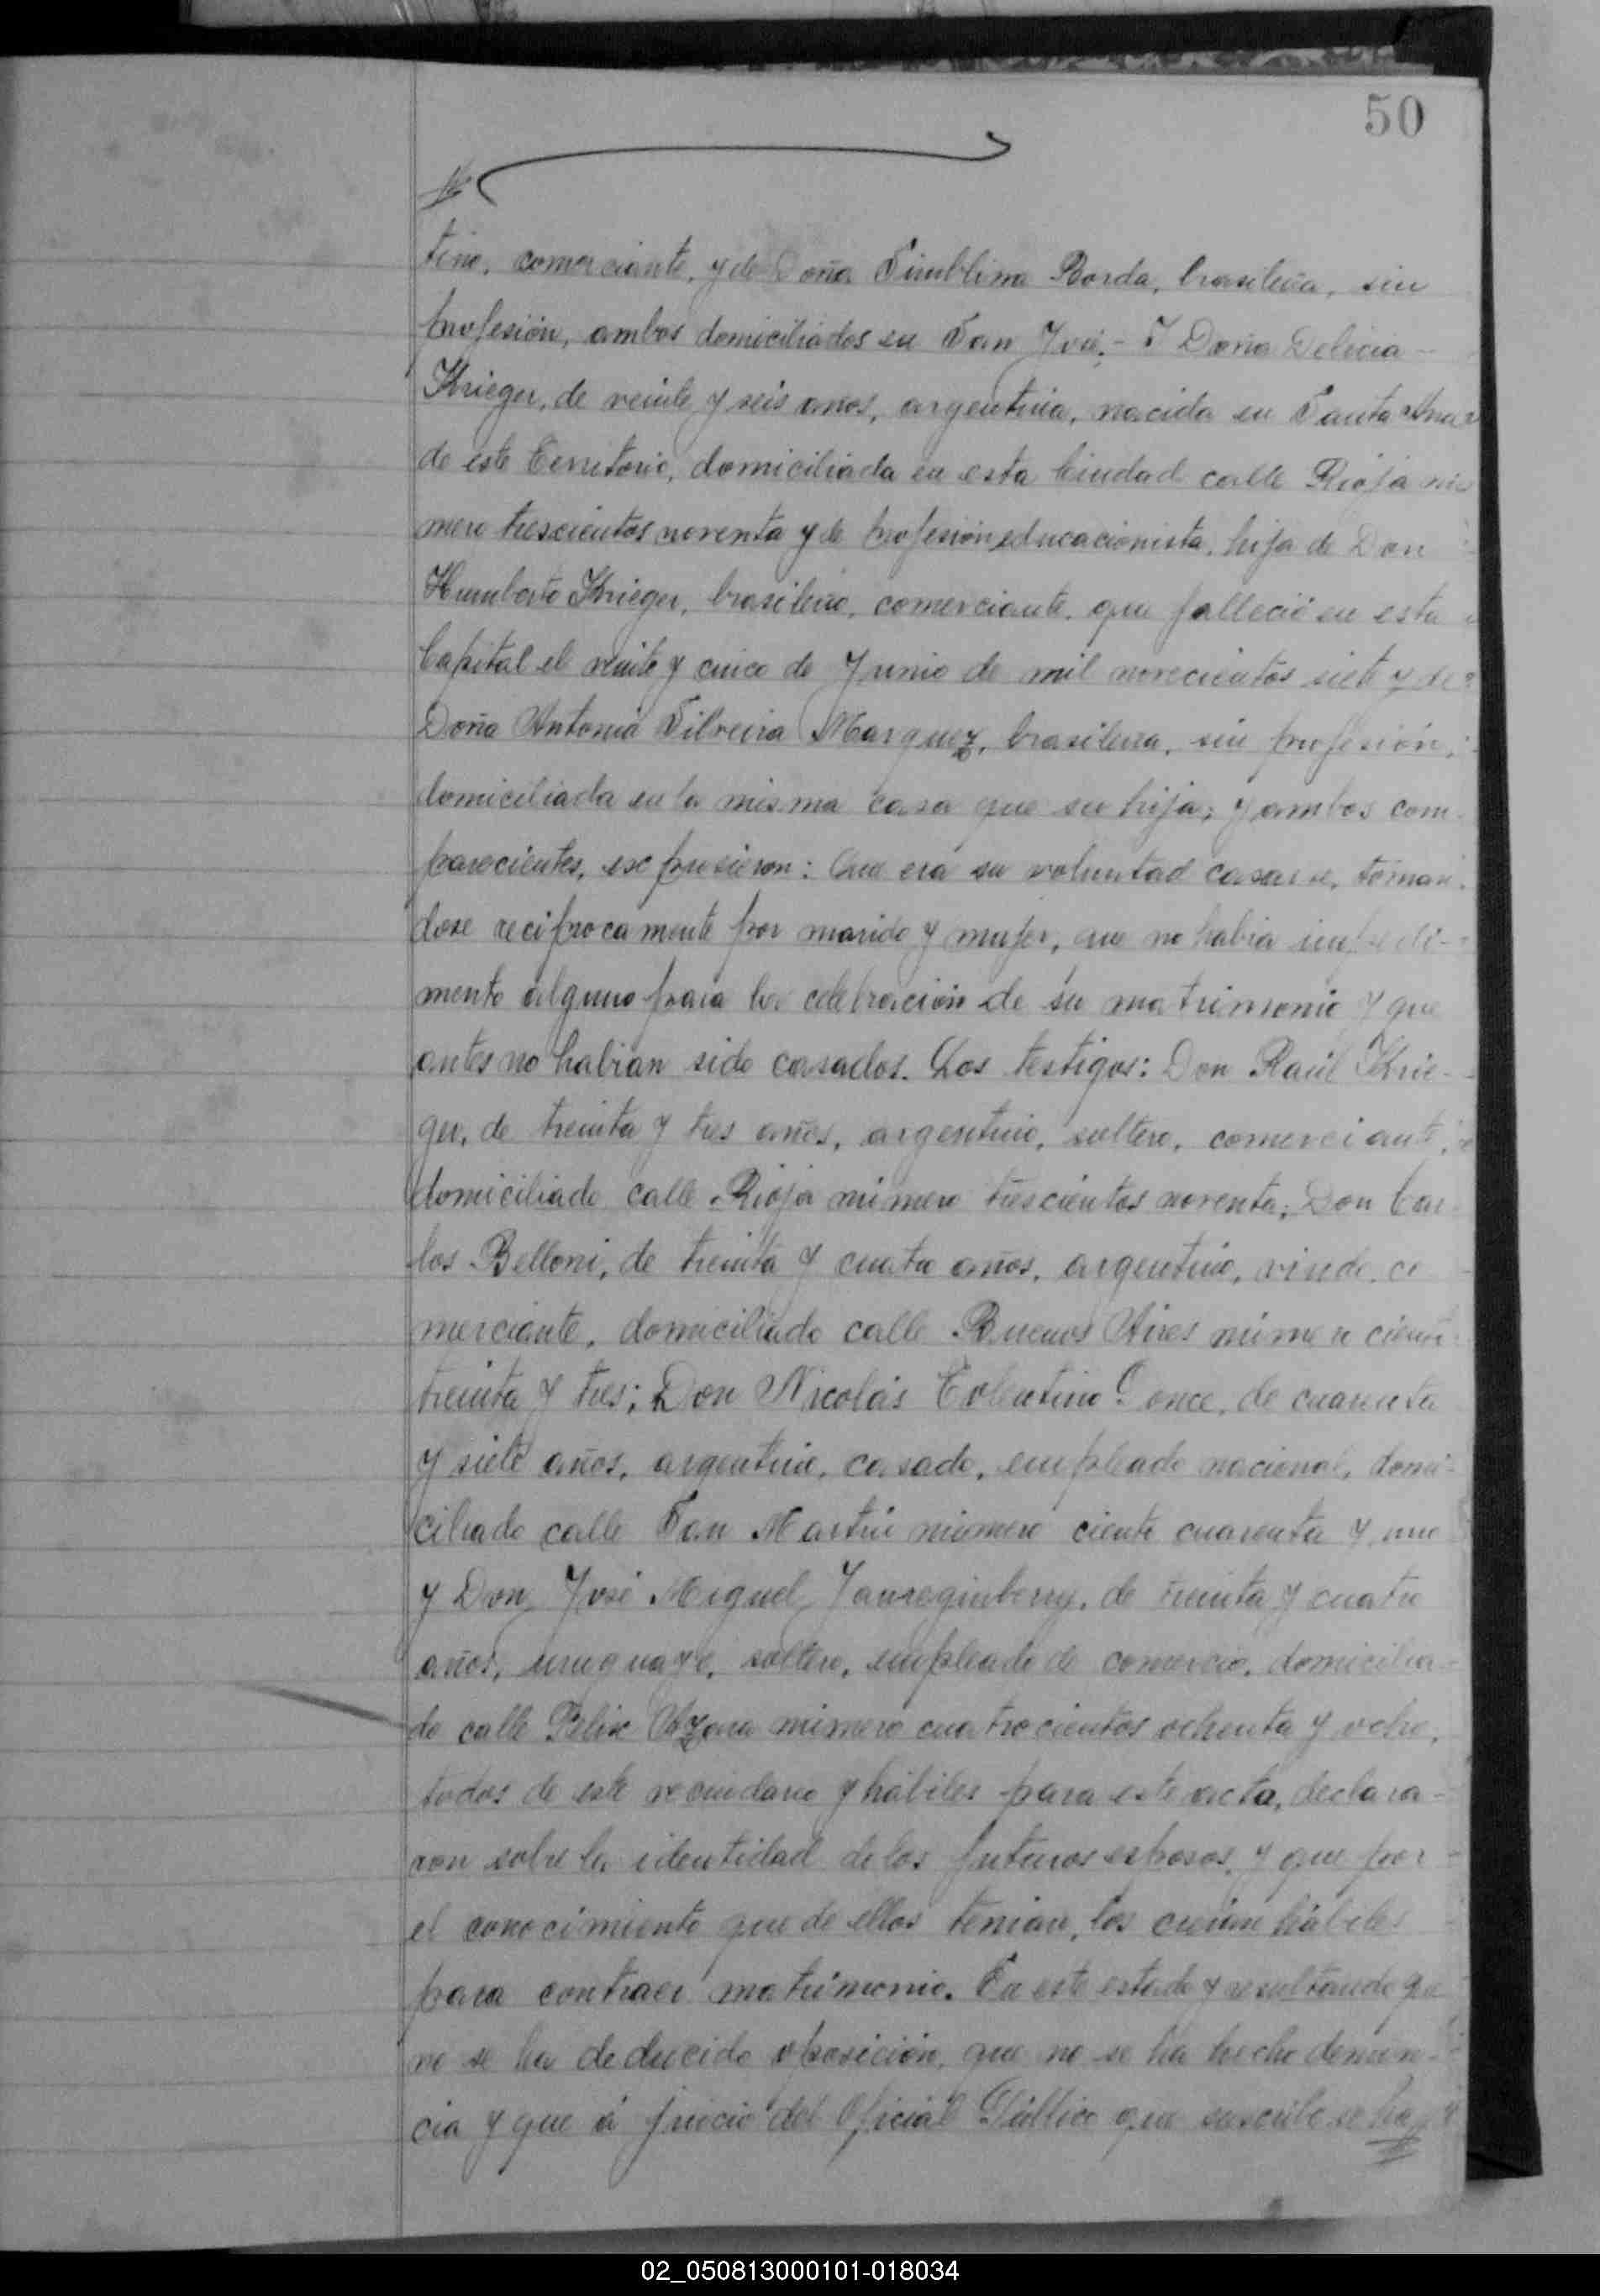 50
tino, comerciante, y de Doña Simblima Borda, brasilera, sin
profesión, ambos domiciliados en San José.- I Doña Delicia -
Krieger, de veinte y seis años, argentina, nacida en Santa Ana
de este Territorio, domiciliada en esta Ciudad calle Rioja nú
mero trescientos noventa y de profesión educacionista, hija de Don
Humberto Krieger, brasilero, comerciante, que falleció en esta
Capital el veinte y cinco de Junio de mil novecientos siete y de
Doña Antonia Silveira Marquez, brasilera, sin profesión,
domiciliada en la misma casa que su hija; y ambos com
parecientes, expusieron: Que era su voluntad casarse, tomán
dose reciprocamente por marido y mujer, que no había impedi-
mento alguno para la celebración de su matrimonio y que
antes no habian sido casados. Los testigos: Don Raúl Krie-
ger, de treinta y tres años, argentino, soltero, comerciante,
domiciliado calle Rioja número trescientos noventa; Don Car
los Belloni, de treinta y cuatro años, argentino, viudo, co
merciante, domiciliado calle Buenos Aires número ciento
treinta y tres; Don Nicolás Tolentino Ponce, de cuarenta
y siete años, argentino, casado, empleado nacional, domi-
ciliado calle San Martín número ciento cuarenta y uno
y Don José Miguel Jaureguiberry, de treinta y cuatro
años, uruguayo, soltero, empleado de comercio, domicilia-
do calle Felix Azara número cuatrocientos ochenta y ocho,
todos de este vecindario y hábiles para este acta, declara-
ron sobre la identidad de los futuros esposos, y que por
el conocimiento que de ellos tenian, los creían hábiles
para contraer matrimonio. En este estado y resultando que
no se ha deducido oposición, que no se ha hecho denun-
cia y que á juicio del Oficial Público que suscribe se ha
02_050813000101-018034